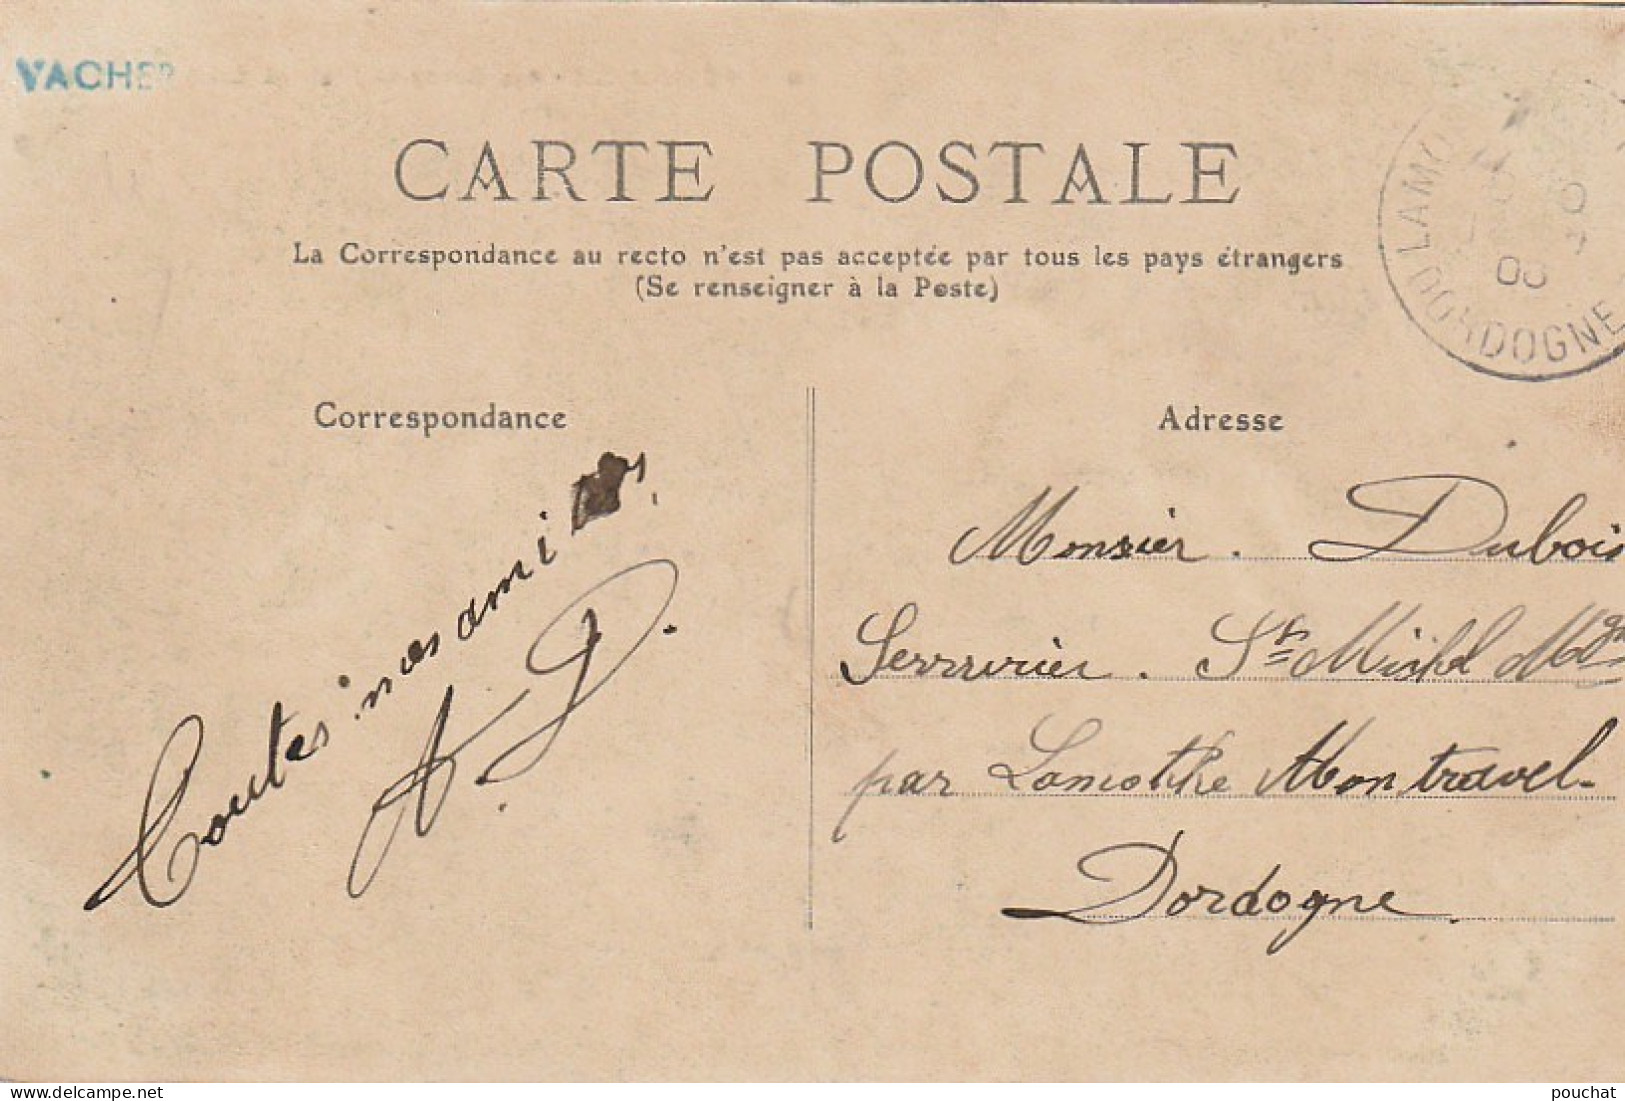 VACHER
CARTE POSTALE
La Correspondance au recto n'est pas acceptée par tous les pays étrangers
(Se renseigner à la Poste)
LAMO
DORDOGNE
08
Correspondance
Adresse
Toutes mes ami
A. D.
Monsieur. Dubois
Serrurier. St Michel Mgne
par Lamothe Montravel.
Dordogne.
pouchat